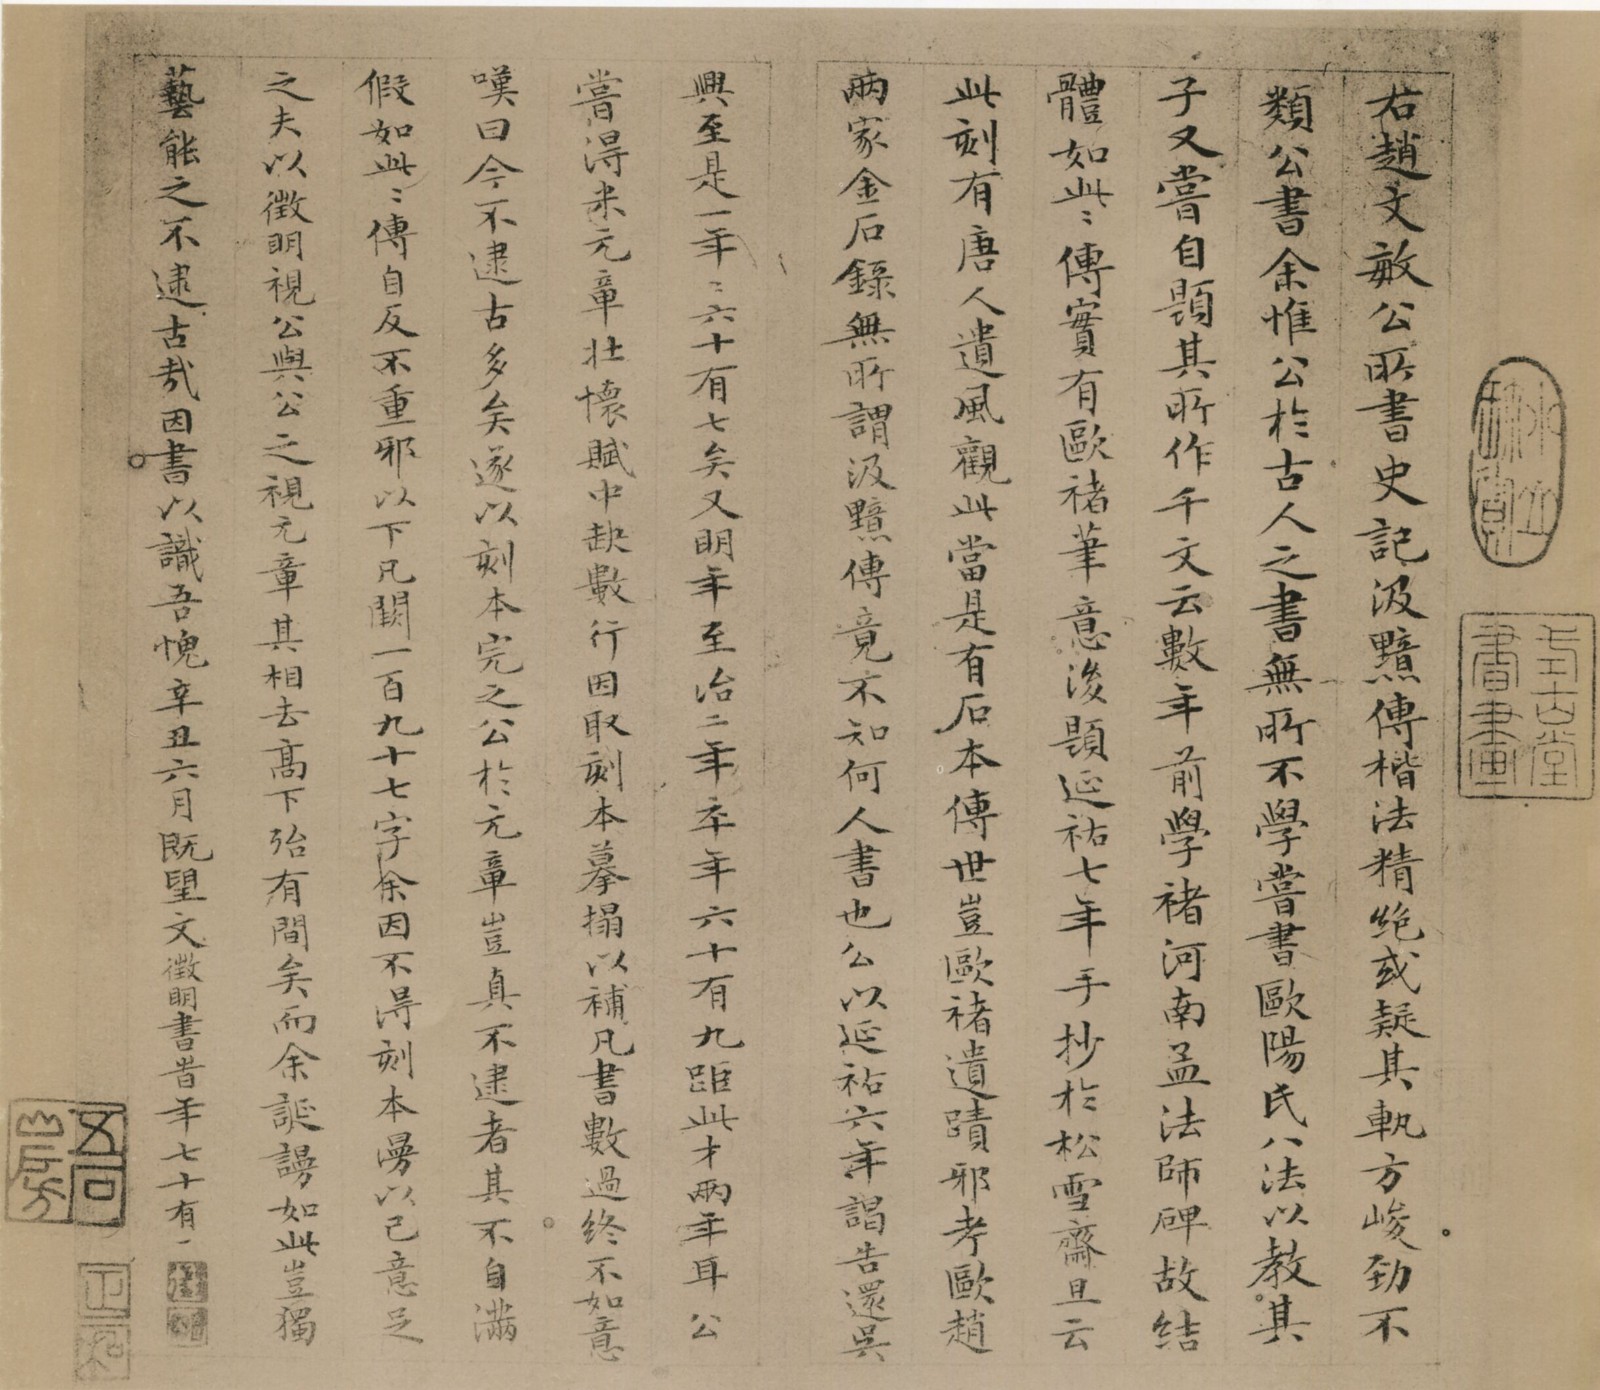 右趙文敏公所書史記汲黯傳楷法精絕或疑其軌方峻勁不
類公書余惟公於古人之書無所不學嘗書歐陽氏八法以教其
子又嘗自題其所作千文云數年前學褚河南孟法師碑故結
體如此〻傳實有歐褚筆意後題延祐七年手抄於松雪齋且云
此刻有唐人遺風觀此當是有石本傳世豈歐褚遺蹟邪考歐趙
兩家金石錄無所謂汲黯傳竟不知何人書也公以延祐六年謁告還吳
興至是一年〻六十有七矣又明年至治二年卒年六十有九距此才兩年耳公
嘗得米元章壯懷賦中缺數行因取刻本摹搨以補凡書數過終不如意
嘆曰今不逮古多矣遂以刻本完之公於元章豈真不逮者其不自滿
假如此〻傳自反不重邪以下凡闕一百九十七字余因不得刻本漫以己意足
之夫以徵明視公與公之視元章其相去高下殆有間矣而余誕謾如此豈獨
藝能之不逮古哉因書以識吾愧辛丑六月既望文徵明書昔年七十有二
五石
山房